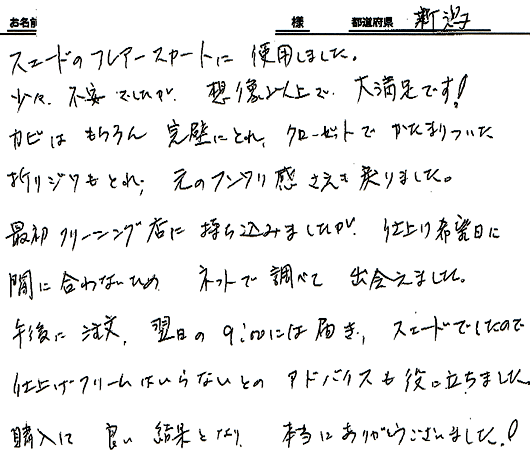 お名前 様 都道府県 新潟
スエードのフレアースカートに 使用しました。
少々、不安でしたが、想像以上で、大満足です!
カビは もちろん 完璧にとれ、クローゼットで かたまりついた
折りジワもとれ、元のフンワリ感さえも戻りました。
最初 クリーニング店に 持ち込みましたが、仕上り希望日に
間に合わないため ネットで 調べて 出会えました。
午後に 注文、翌日の 9:00には届き、スエードでしたので
仕上げクリームはいらないとの アドバイスも 役に立ちました。
購入して 良い 結果となり 本当に ありがとうございました!